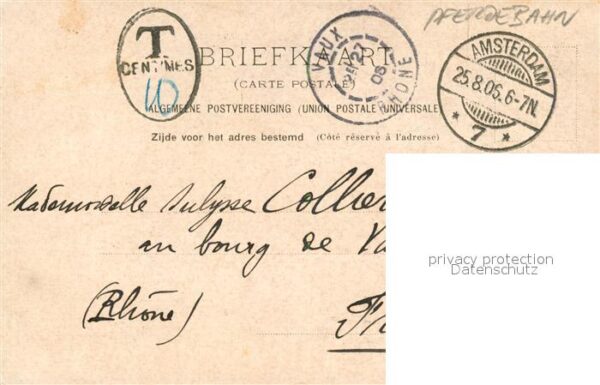 PFERDEBAHN
T
CENTIMES
10
BRIEFKAART
(CARTE POSTALE)
ALGEMEENE POSTVEREENIGING (UNION POSTALE UNIVERSELLE
Zijde voor het adres bestemd (Côté réservé à l'adresse)
VAUX
27
06
RHONE
AMSTERDAM
25.8.06.6-7N.
* 7 *
Mademoiselle Collie
au bourg de Va
(Rhône)
Fr
privacy protection
Datenschutz